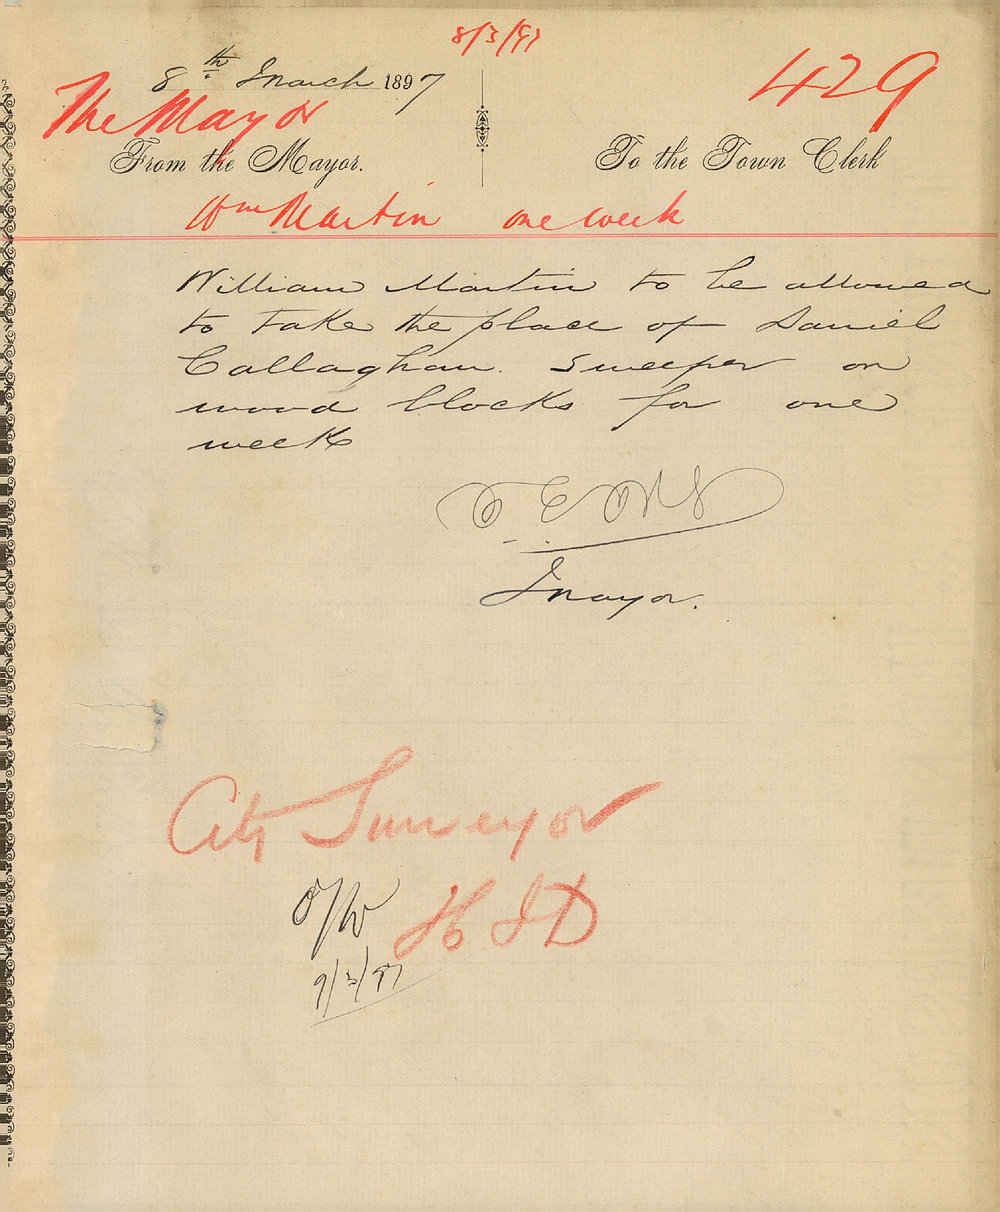 8/3/97
8th March 1897
429
The Mayor
From the Mayor.
To the Town Clerk
Wm Martin one week
William Martin to be allowed
to take the place of Daniel
Callaghan. Sweeper on
wood blocks for one
week
Mayor.
City Surveyor
HJD
9/3/97